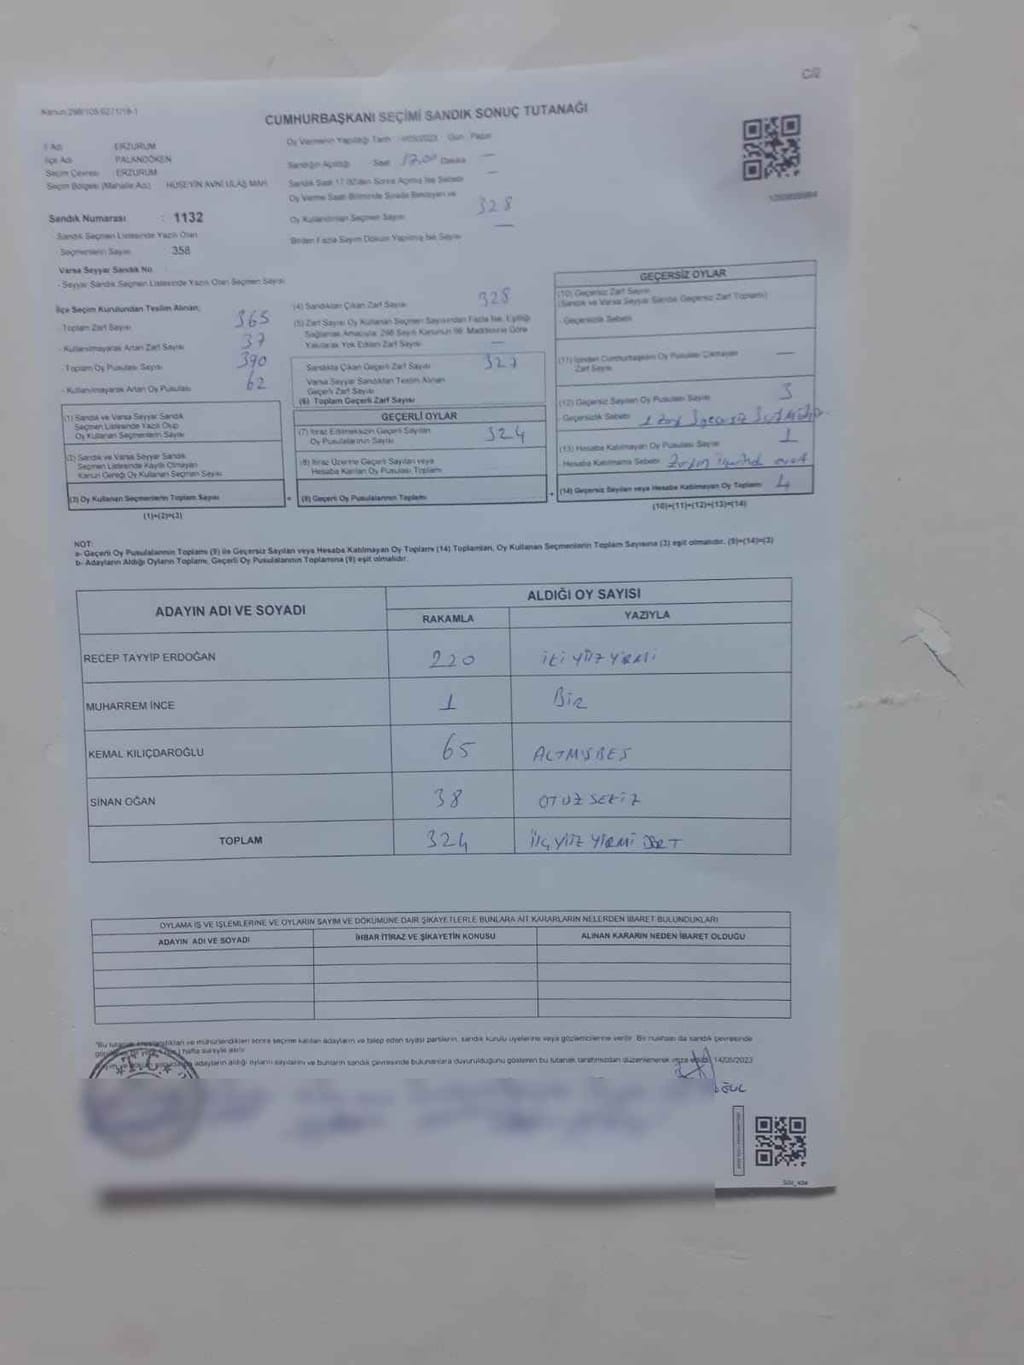 C/2
CUMHURBAŞKANI SEÇİMİ SANDIK SONUÇ TUTANAĞI
İl Adı ERZURUM
İlçe Adı PALANDÖKEN
Seçim Çevresi ERZURUM
Seçim Bölgesi (Mahalle Adı) HÜSEYİN AVNİ ULAŞ MAH.
Sandık Numarası : 1132
Sandık Seçmen Listesinde Yazılı Olan
Seçmenlerin Sayısı 358
Varsa Seyyar Sandık No
- Seyyar Sandık Seçmen Listesinde Yazılı Olan Seçmen Sayısı
Oy Vermenin Yapıldığı Tarih Gün : Pazar
Sandığın Açıldığı Saat 17.00 Dakika —
Sandık Saat 17.00'den Sonra Açılmış İse Sebebi —
Oy Verme Saati Bitiminde Sırada Bekleyen ve
Oy Kullandırılan Seçmen Sayısı 328
Birden Fazla Sayım Döküm Yapılmış İse, Sayısı —
İlçe Seçim Kurulundan Teslim Alınan;
- Toplam Zarf Sayısı 365
- Kullanılmayarak Artan Zarf Sayısı 37
- Toplam Oy Pusulası Sayısı 390
- Kullanılmayarak Artan Oy Pusulası 62
(1) Sandık ve Varsa Seyyar Sandık
Seçmen Listesinde Yazılı Olup
Oy Kullanan Seçmenlerin Sayısı
(2) Sandık ve Varsa Seyyar Sandık
Seçmen Listesinde Kayıtlı Olmayan
Kanun Gereği Oy Kullanan Seçmen Sayısı
(3) Oy Kullanan Seçmenlerin Toplam Sayısı
(1)+(2)=(3)
(4) Sandıktan Çıkan Zarf Sayısı 328
(5) Zarf Sayısı Oy Kullanan Seçmen Sayısından Fazla İse, Eşitliği
Sağlamak Amacıyla, 298 Sayılı Kanunun 98. Maddesine Göre
Yakılarak Yok Edilen Zarf Sayısı —
Sandıkta Çıkan Geçerli Zarf Sayısı 327
Varsa Seyyar Sandıktan Teslim Alınan
Geçerli Zarf Sayısı
(6) Toplam Geçerli Zarf Sayısı
GEÇERLİ OYLAR
(7) İtiraz Edilmeksizin Geçerli Sayılan
Oy Pusulalarının Sayısı 324
(8) İtiraz Üzerine Geçerli Sayılan veya
Hesaba Katılan Oy Pusulası Toplamı
(9) Geçerli Oy Pusulalarının Toplamı
GEÇERSİZ OYLAR
(10) Geçersiz Zarf Sayısı
(Sandık ve Varsa Seyyar Sandık Geçersiz Zarf Toplamı)
- Geçersizlik Sebebi
(11) İçinden Cumhurbaşkanı Oy Pusulası Çıkmayan
Zarf Sayısı —
(12) Geçersiz Sayılan Oy Pusulası Sayısı 3
- Geçersizlik Sebebi
(13) Hesaba Katılmayan Oy Pusulası Sayısı 1
- Hesaba Katılmama Sebebi
(14) Geçersiz Sayılan veya Hesaba Katılmayan Oy Toplamı 4
(10)+(11)+(12)+(13)=(14)
NOT:
a- Geçerli Oy Pusulalarının Toplamı (9) ile Geçersiz Sayılan veya Hesaba Katılmayan Oy Toplamı (14) Toplamları, Oy Kullanan Seçmenlerin Toplam Sayısına (3) eşit olmalıdır. (9)+(14)=(3)
b- Adayların Aldığı Oyların Toplamı, Geçerli Oy Pusulalarının Toplamına (9) eşit olmalıdır.
ADAYIN ADI VE SOYADI
ALDIĞI OY SAYISI
RAKAMLA YAZIYLA
RECEP TAYYİP ERDOĞAN 220 İKİ YÜZ YİRMİ
MUHARREM İNCE 1 BİR
KEMAL KILIÇDAROĞLU 65 ALTMIŞBEŞ
SİNAN OĞAN 38 OTUZ SEKİZ
TOPLAM 324 ÜÇ YÜZ YİRMİ DÖRT
OYLAMA İŞ VE İŞLEMLERİNE VE OYLARIN SAYIM VE DÖKÜMÜNE DAİR ŞİKAYETLERLE BUNLARA AİT KARARLARIN NELERDEN İBARET BULUNDUKLARI
ADAYIN ADI VE SOYADI İHBAR İTİRAZ VE ŞİKAYETİN KONUSU ALINAN KARARIN NEDEN İBARET OLDUĞU
mühürlendikten sonra seçime katılan adayların ve talep eden siyasi partilerin, sandık kurulu üyelerine veya gözlemcilerine verilir. Bir nüshası da sandık çevresinde
hafta süreyle asılır.
adayların aldığı oyların sayılarını ve bunların sandık çevresinde bulunanlara duyurulduğunu gösteren bu tutanak tarafımızdan düzenlenerek imza edildi. 14/05/2023
T.C.